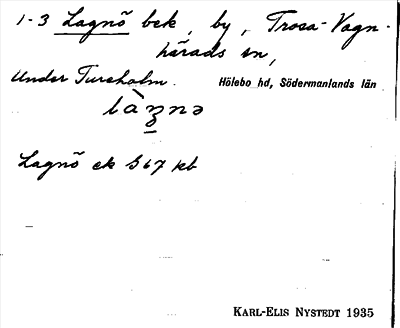 1-3 Lagnö bek, by, Trosa-Vagn-
härads sn,
Under Tureholm. Hölebo hd, Södermanlands län
Lagnö ek S67 kb
KARL-ELIS NYSTEDT 1935